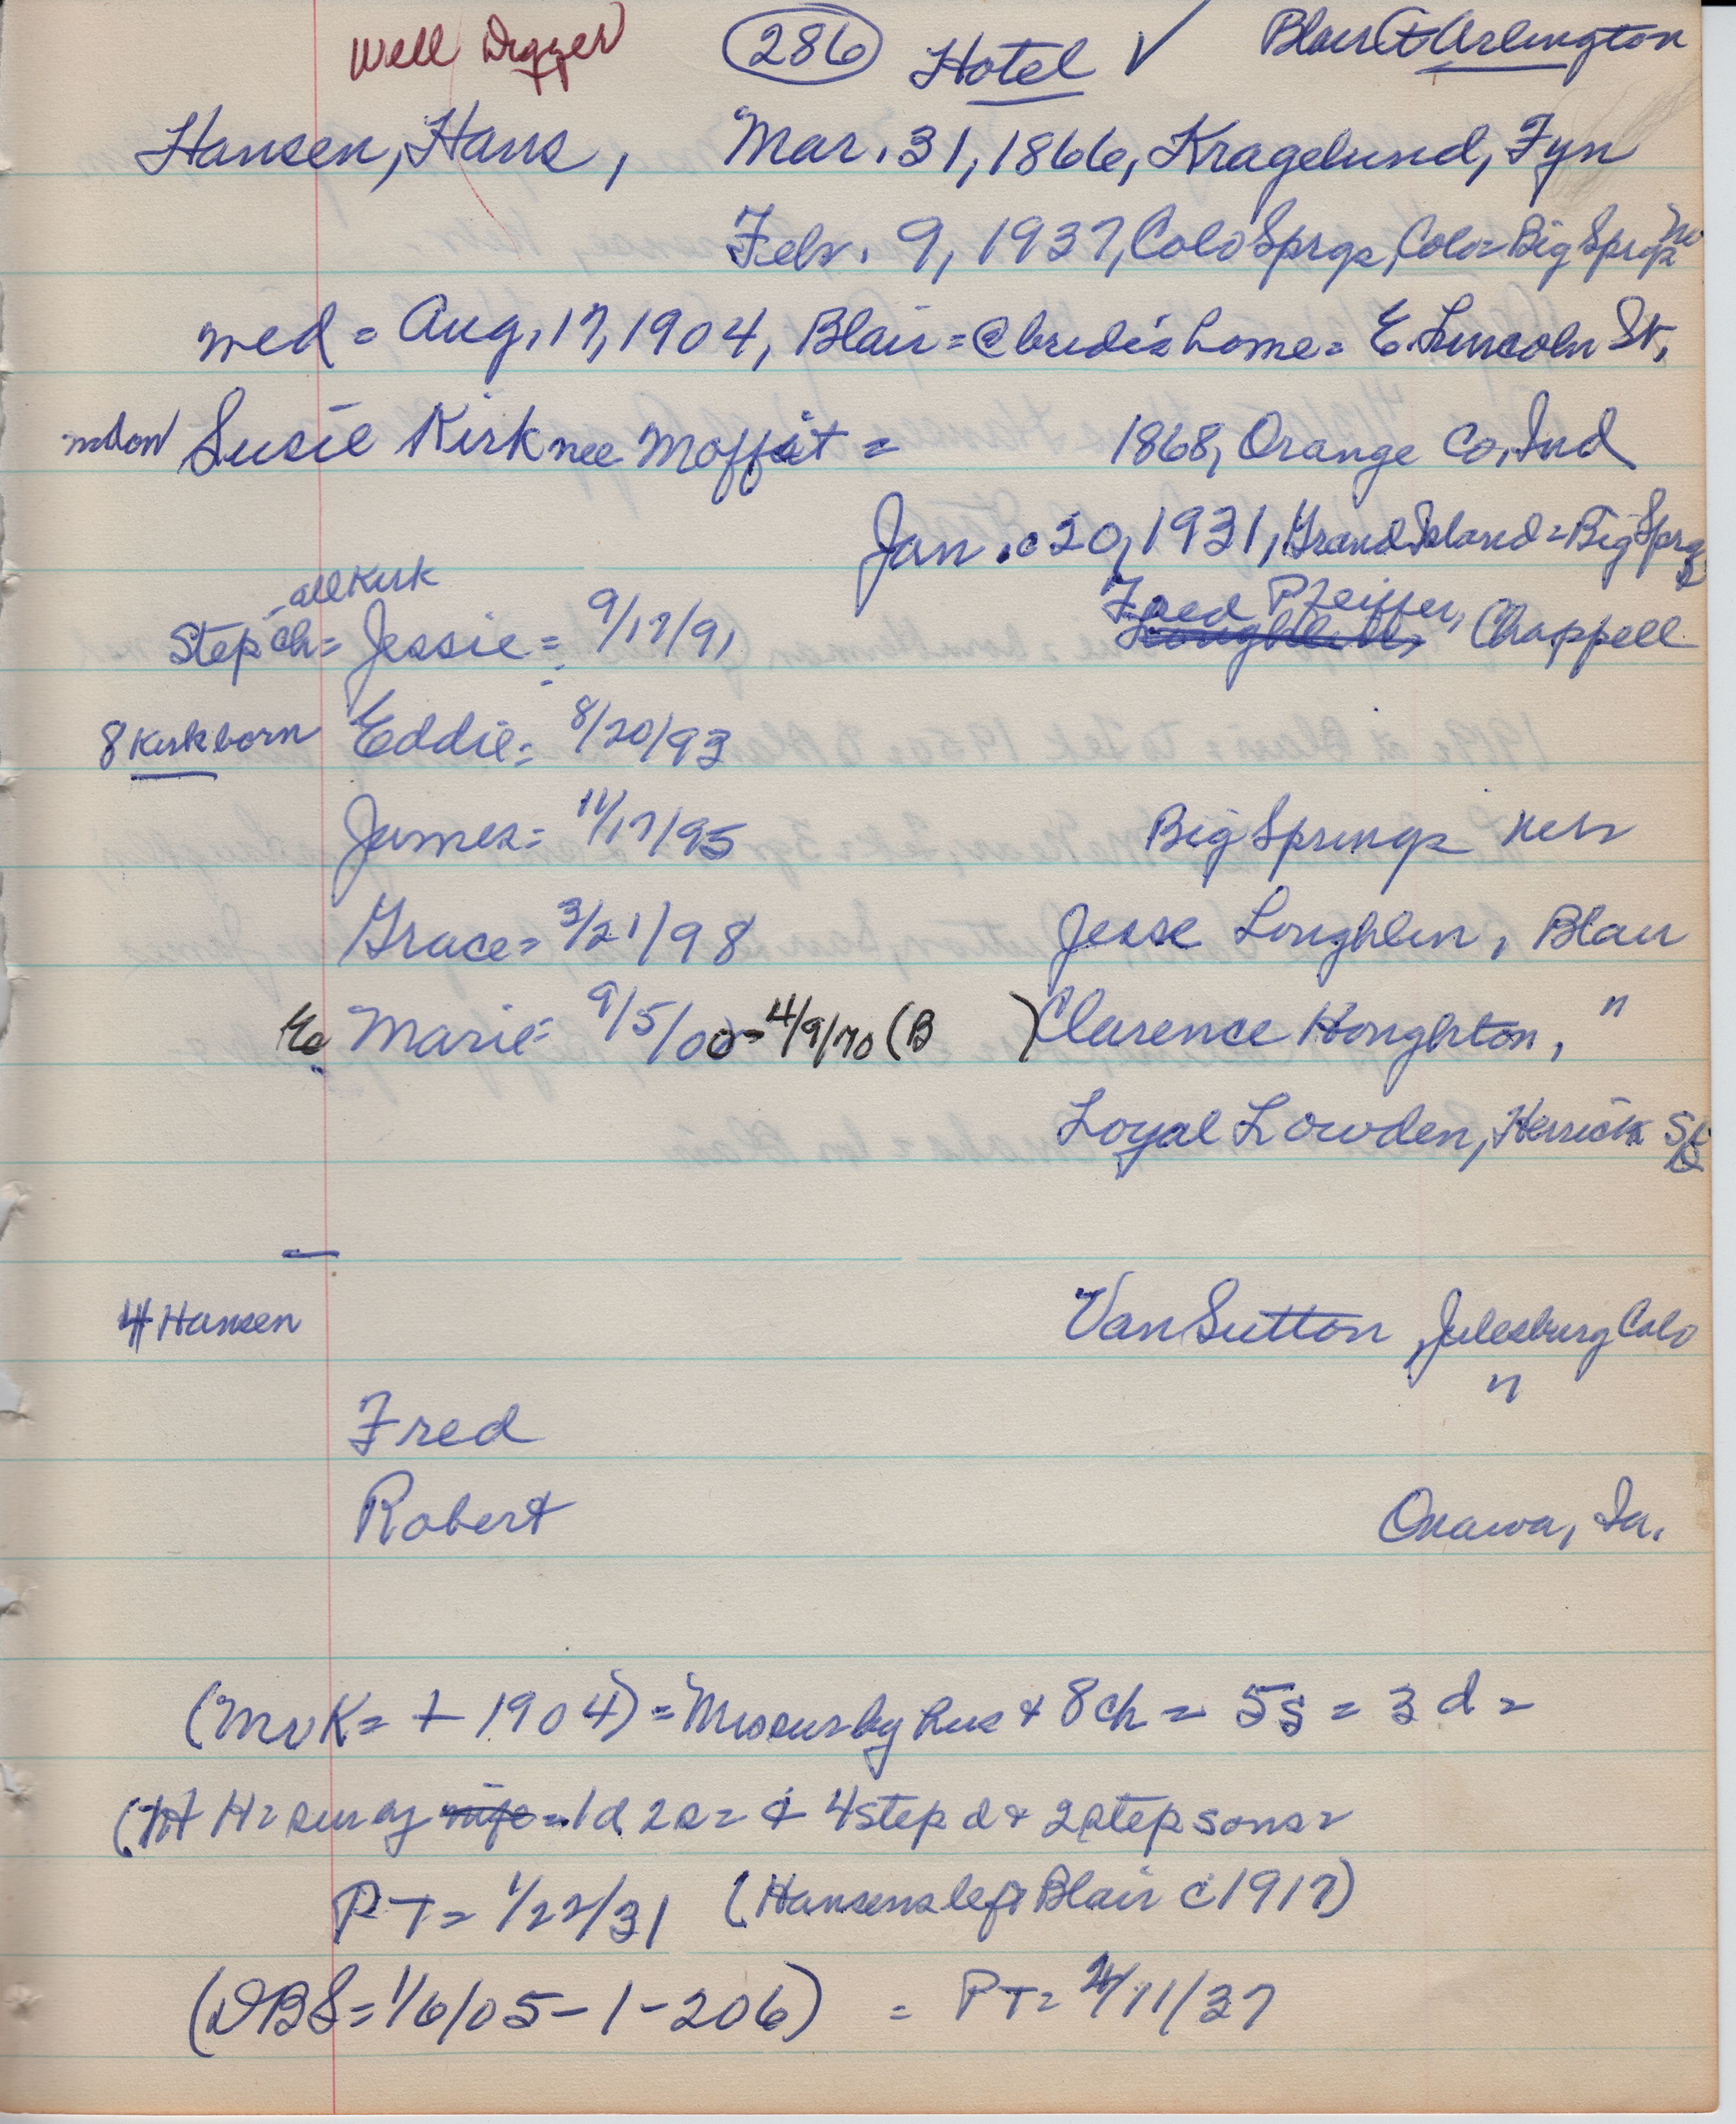 Well Digger (286) Hotel ✓ Blair & Arlington
Hansen, Hans, Mar. 31, 1866, Kragelund, Fyn
Febr. 9, 1937, Colo Sprgs, Colo = Big Sprgs Ne
med = Aug. 17, 1904, Blair = @ bride's home = E. Lincoln St.
Susie Kirk nee Moffat = 1868, Orange Co, Ind
Jan. c 20, 1931, Grand Island = Big Sprgs
all Kirk
Fred Pfeiffer,
Step ch = Jessie = 9/17/91 Chappell
8 Kirk born Eddie = 8/20/93
James = 11/17/95 Big Springs Nebr
Grace = 3/21/98 Jesse Loughlin, Blair
Marie = 9/5/00 = 4/9/70 (B ) Clarence Houghton, "
Loyal Lowden, Herrick SD
4 Hansen Van Sutton, Julesburg Colo
"
Fred
Robert Onawa, Ia.
(Mr K = + 1904) = Mrs sur by hus + 8 ch = 5s = 3 d =
H = sur by wife = 1d 2s = + 4 step d + 2 step sons =
PT = 1/22/31 (Hansens left Blair c 1917)
(DBS = 1/6/05 - 1 - 206) = PT = 2/11/37